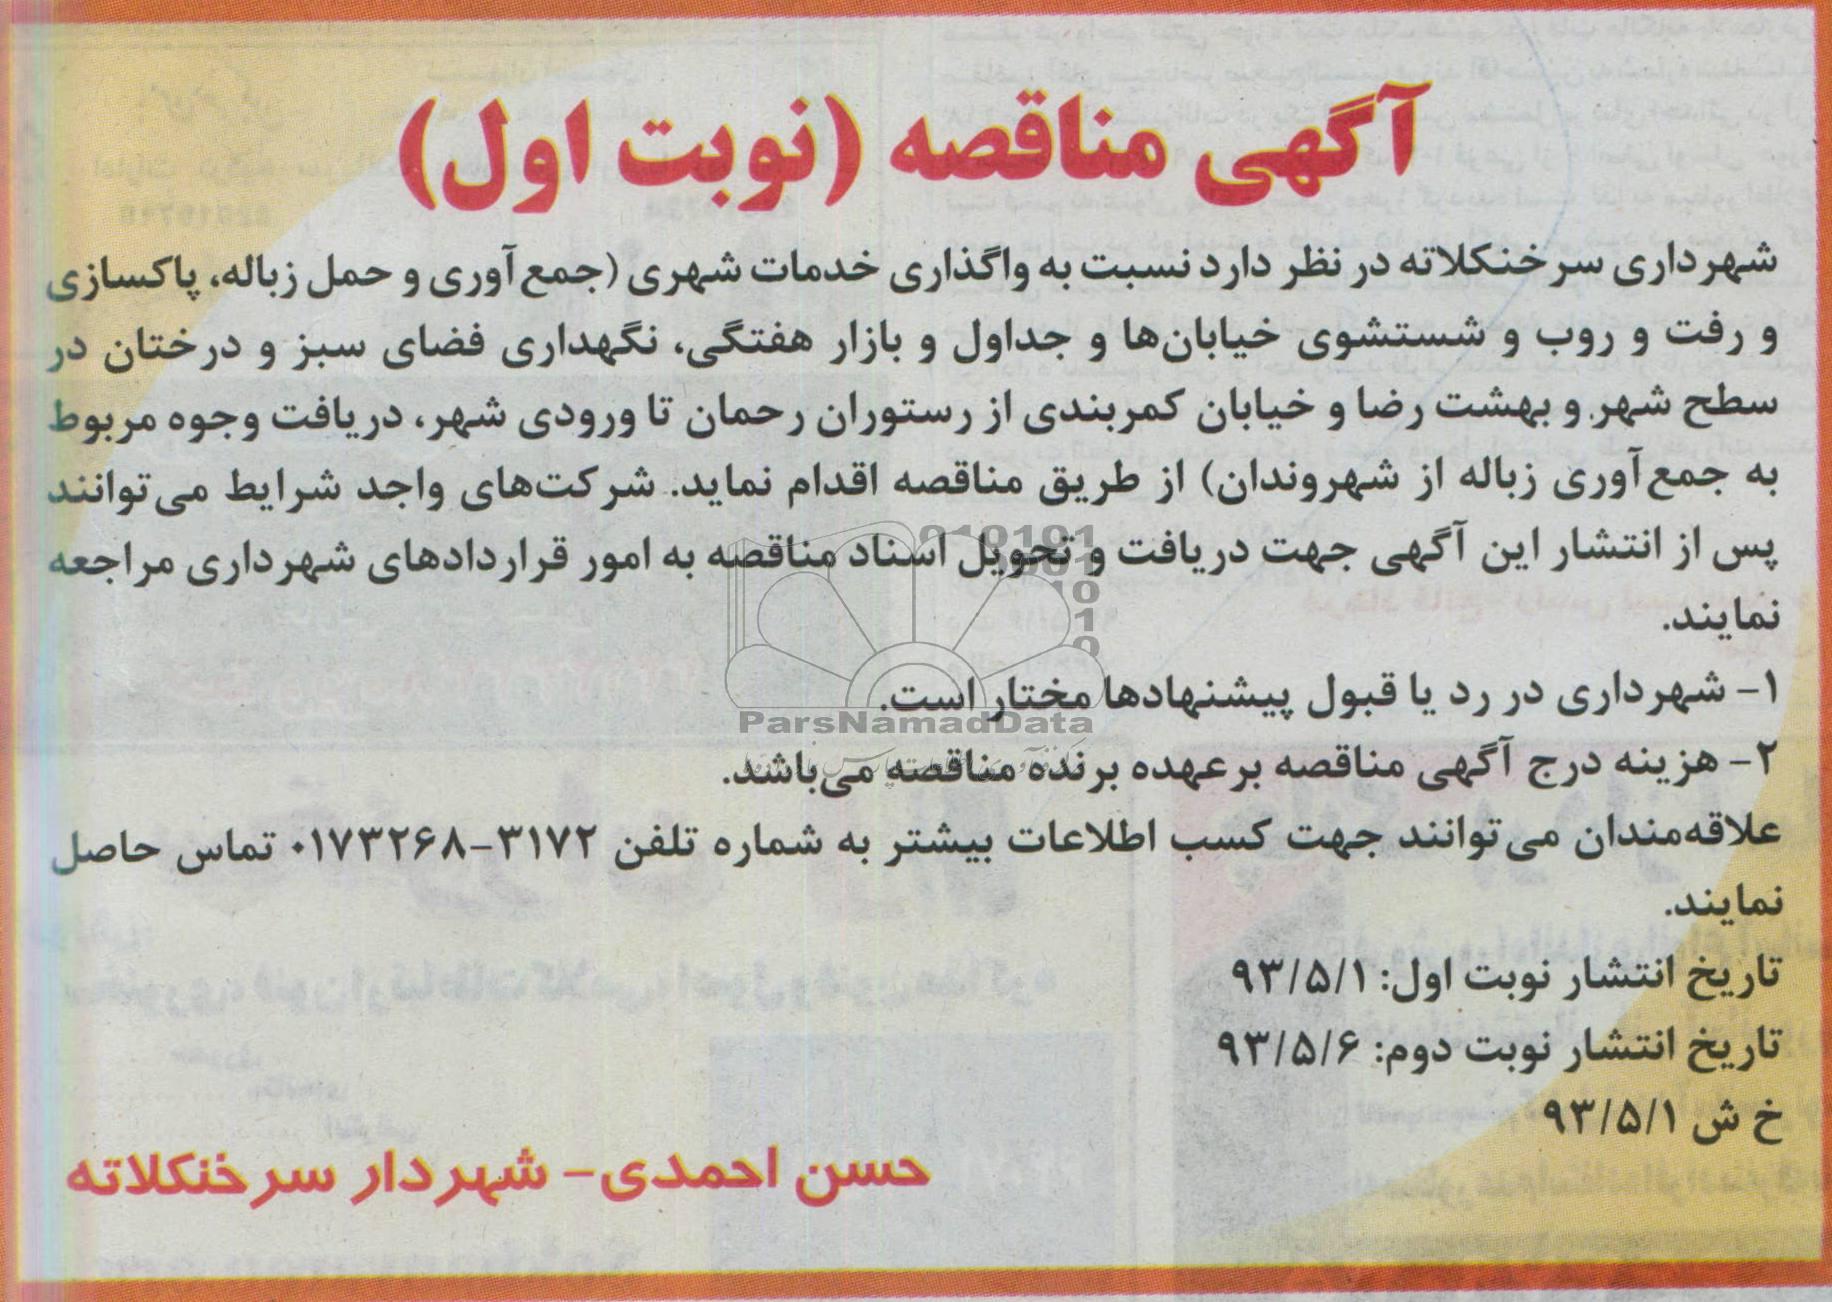 آگهی مناقصه (نوبت اول)
شهرداری سرخنکلاته در نظر دارد نسبت به واگذاری خدمات شهری (جمع‌آوری و حمل زباله، پاکسازی
و رفت و روب و شستشوی خیابان‌ها و جداول و بازار هفتگی، نگهداری فضای سبز و درختان در
سطح شهر و بهشت رضا و خیابان کمربندی از رستوران رحمان تا ورودی شهر، دریافت وجوه مربوط
به جمع‌آوری زباله از شهروندان) از طریق مناقصه اقدام نماید. شرکت‌های واجد شرایط می‌توانند
پس از انتشار این آگهی جهت دریافت و تحویل اسناد مناقصه به امور قراردادهای شهرداری مراجعه
نمایند.
۱- شهرداری در رد یا قبول پیشنهادها مختار است.
ParsNamadData
۲- هزینه درج آگهی مناقصه برعهده برنده مناقصه می‌باشد.
علاقه‌مندان می‌توانند جهت کسب اطلاعات بیشتر به شماره تلفن ۳۱۷۲-۰۱۷۳۲۶۸ تماس حاصل
نمایند.
تاریخ انتشار نوبت اول: ۹۳/۵/۱
تاریخ انتشار نوبت دوم: ۹۳/۵/۶
خ ش ۹۳/۵/۱
حسن احمدی- شهردار سرخنکلاته